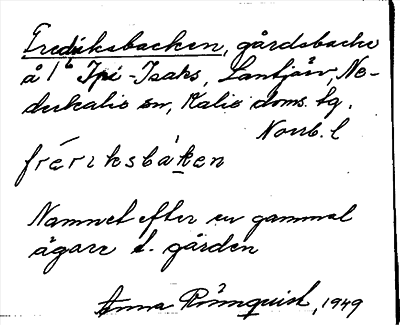 Fredriksbacken, gårdsbacke
å 1⁶ Ipi-Isaks, Lantjärv, Ne-
derkalix sn, Kalix doms. tg.
Norrb. l
frériksbàken
Namnet efter en gammal
ägare t. gården
Anna Rönnquist, 1949